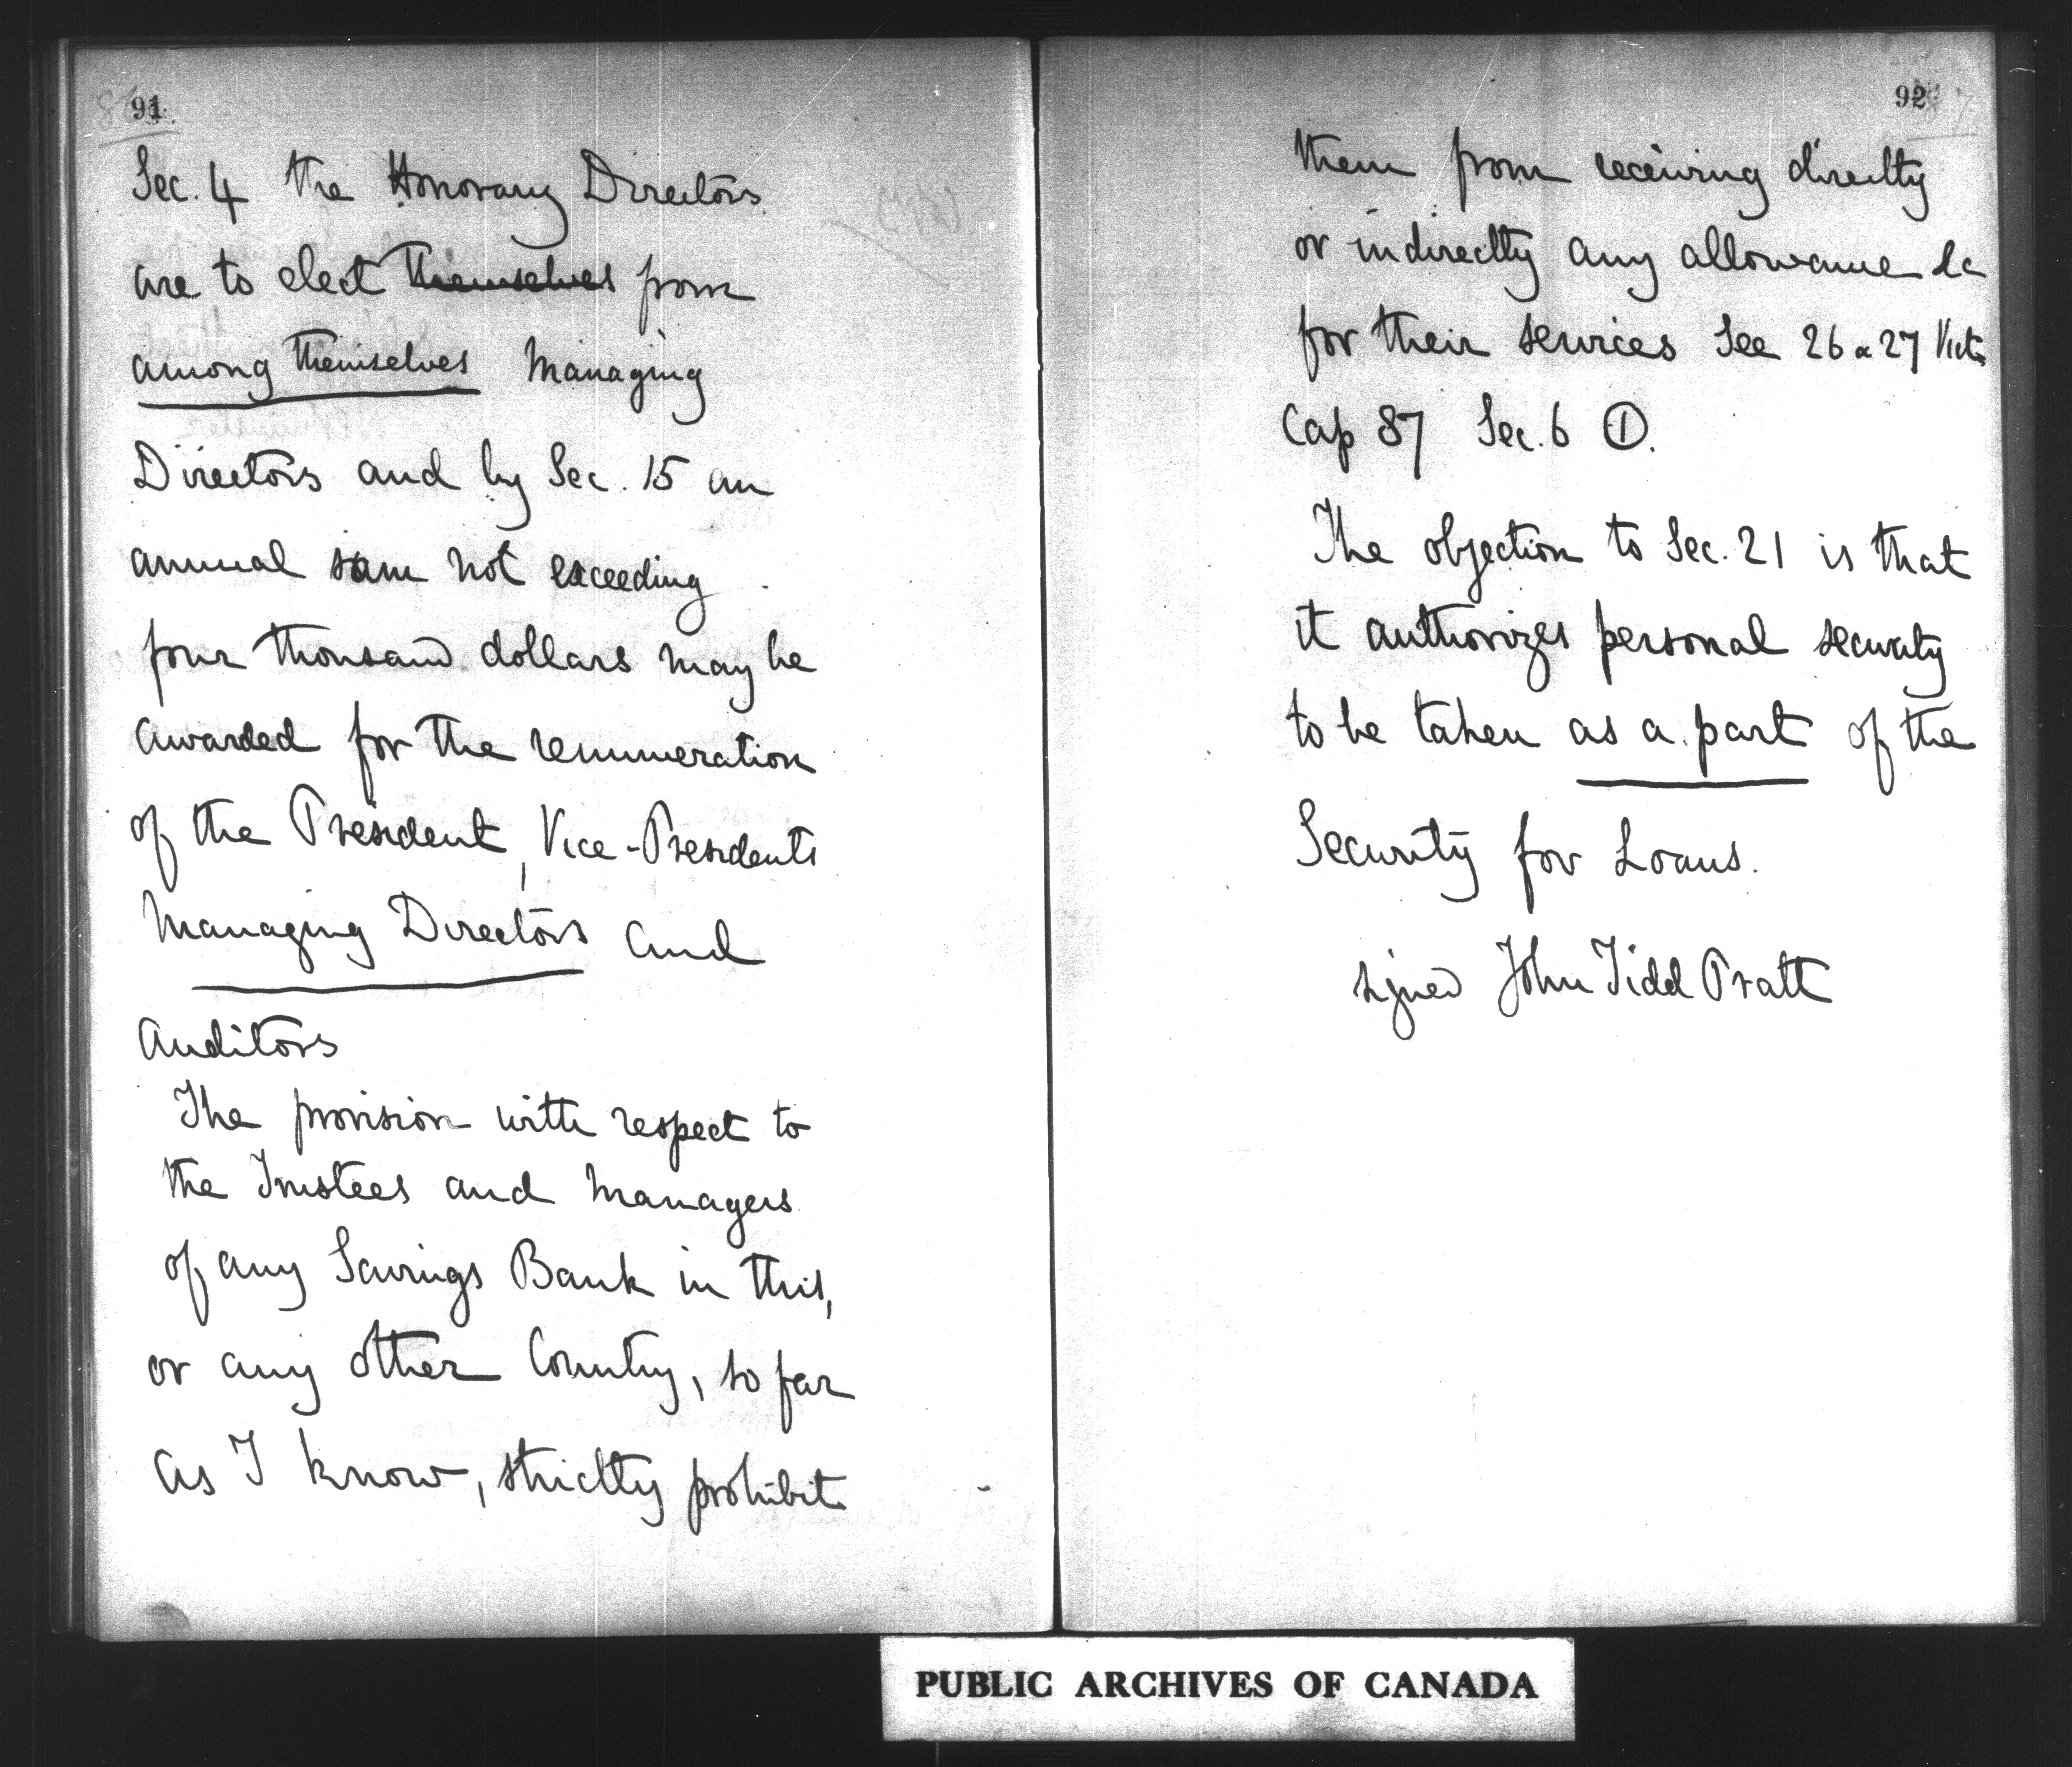 91
Sec. 4 the Honorary Directors
are to elect themselves from
among themselves Managing
Directors and by Sec. 15 an
annual sum not exceeding
four thousand dollars may be
awarded for the remuneration
of the President, Vice-Presidents
Managing Directors and
Auditors
The provision with respect to
the Trustees and Managers
of any Savings Bank in this,
or any other Country, so far
as I know, strictly prohibit
92
them from receiving directly
or indirectly any allowance &c
for their services See 26 & 27 Vict
Cap 87 Sec. 6 ①.
The objection to Sec. 21 is that
it authorizes personal security
to be taken as a part of the
Security for Loans.
signed John Tidd Pratt
PUBLIC ARCHIVES OF CANADA